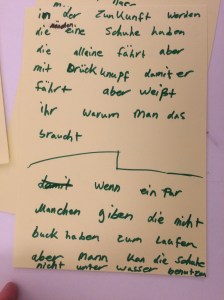 in der Zunkunft werden
die eine Schuhe haden
die alleine fährt aber
mit Drückknopf damit er
fährt aber weißt
ihr warum man das
braucht
damit wenn ein Par
Manchen giben die nicht
buck haben zum Laufen
aber mann kan die Schuhe
nicht unter wasser benutzen